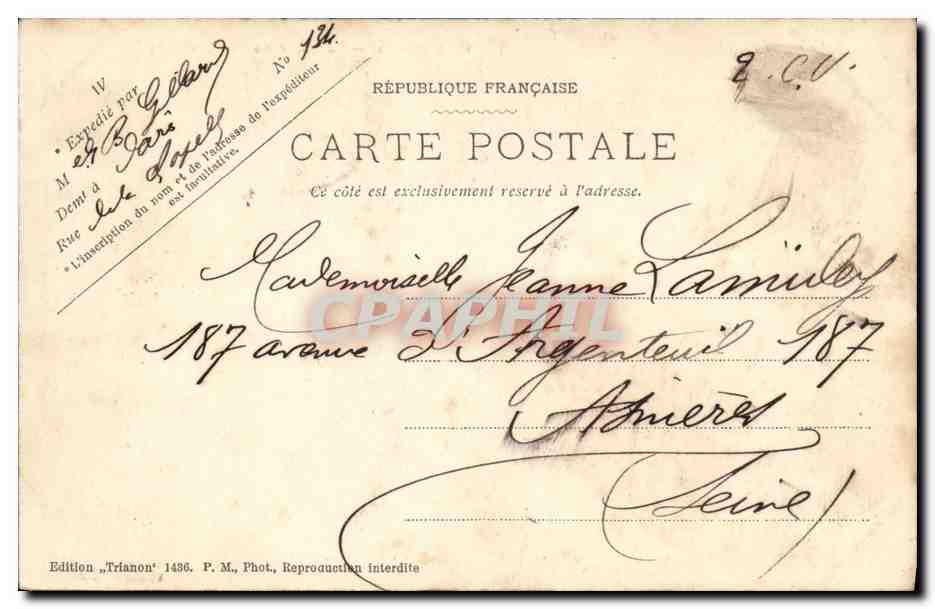 IV
* Expédié par
M et B Gillard
Demt à Paris
Rue de la No 134.
* L'inscription du nom et de l'adresse de l'expéditeur
est facultative.
2. C. V.
RÉPUBLIQUE FRANÇAISE
CARTE POSTALE
Ce côté est exclusivement reservé à l'adresse.
Mademoiselle Jeanne
CPAPHIL
187 avenue d'Argenteuil 187
Asnières
(Seine)
Edition „Trianon' 1436. P. M., Phot., Reproduction interdite